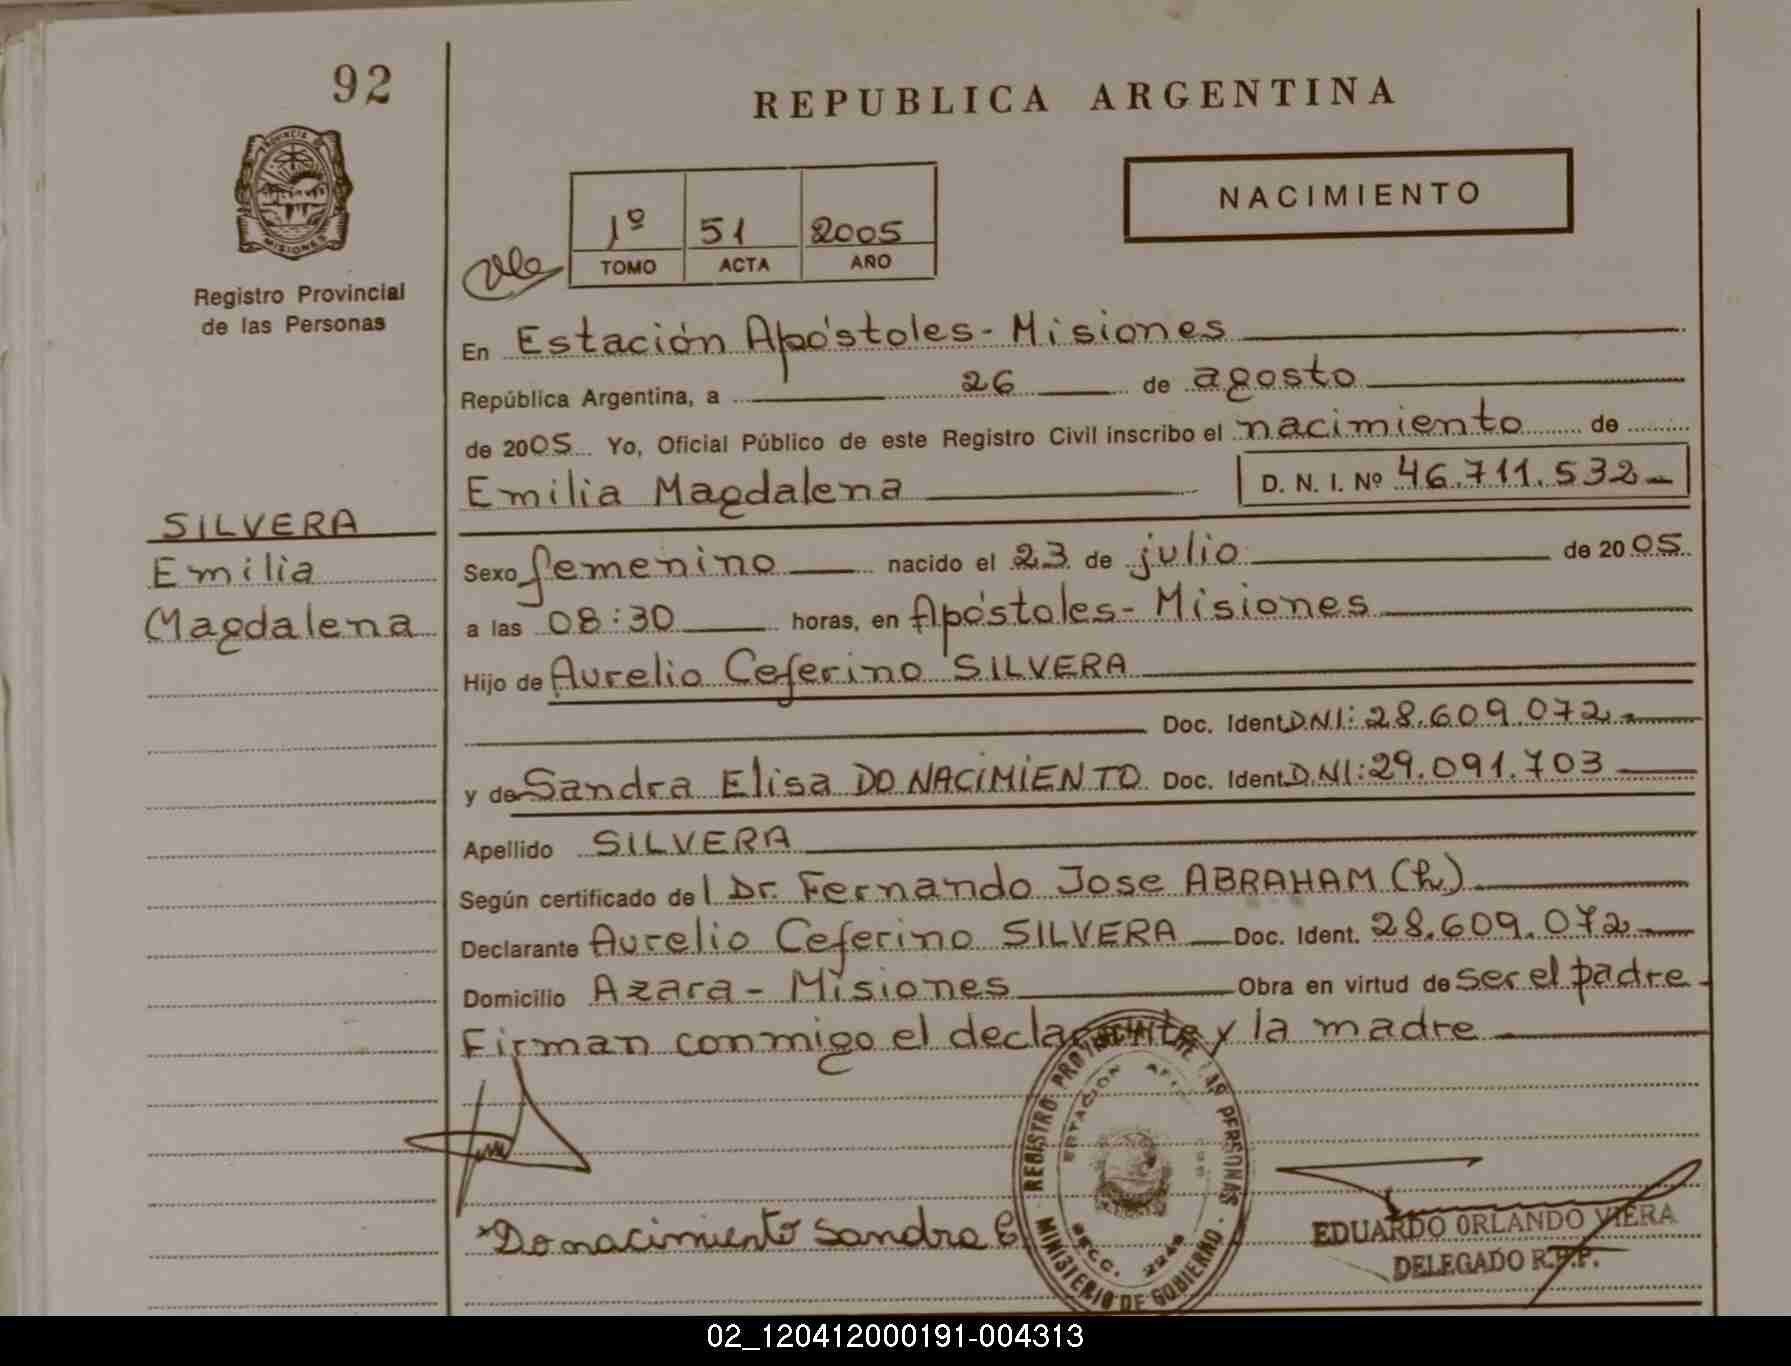 92
REPUBLICA ARGENTINA
PROVINCIA DE
MISIONES
Registro Provincial
de las Personas
NACIMIENTO
1º 51 2005
TOMO ACTA AÑO
En Estación Apóstoles - Misiones
República Argentina, a 26 de agosto
de 2005 Yo, Oficial Público de este Registro Civil inscribo el nacimiento de
Emilia Magdalena D. N. I. Nº 46.711.532
SILVERA
Emilia
Magdalena
Sexo femenino nacido el 23 de julio de 2005
a las 08:30 horas, en Apóstoles - Misiones
Hijo de Aurelio Ceferino SILVERA
Doc. Ident. D.N.I: 28.609.072
y de Sandra Elisa DO NACIMIENTO Doc. Ident. D.N.I: 29.091.703
Apellido SILVERA
Según certificado del Dr. Fernando Jose ABRAHAM (h)
Declarante Aurelio Ceferino SILVERA Doc. Ident. 28.609.072
Domicilio Azara - Misiones Obra en virtud de ser el padre
Firman conmigo el declarante y la madre
REGISTRO PROVINCIAL DE LAS PERSONAS
ESTACION
SECC. 2248
MINISTERIO DE GOBIERNO
Do nacimiento Sandra E
EDUARDO ORLANDO VIERA
DELEGADO R.P.P.
02_120412000191-004313